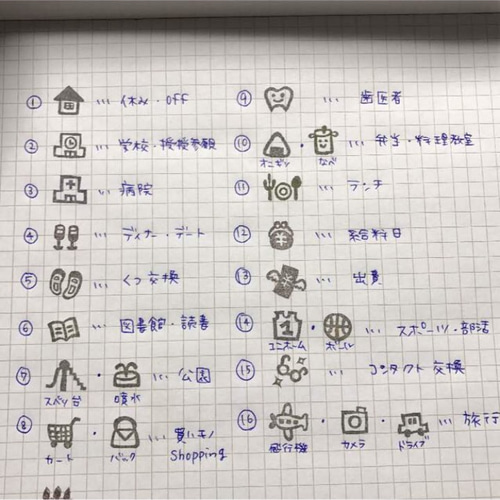 ① … 休み・OFF
② … 学校・授業参観
③ … 病院
④ … ディナー・デート
⑤ … くつ交換
⑥ … 図書館・読書
⑦ ・ … 公園
スベリ台 噴水
⑧ ・ … 買いモノ
カート バック Shopping
⑨ … 歯医者
⑩ ・ … 弁当・料理教室
オニギリ なべ
⑪ … ランチ
⑫ … 給料日
⑬ … 出費
⑭ 1 ・ … スポーツ・部活
ユニホーム ボール
⑮ … コンタクト交換
⑯ ・ ・ … 旅行
飛行機 カメラ ドライブ